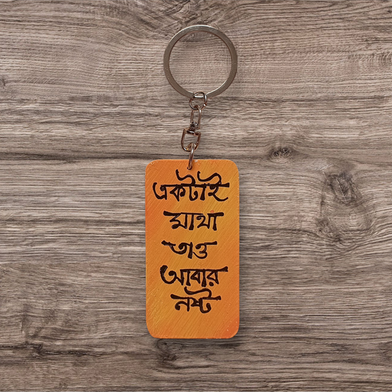 একটাই
মাথা
তাও
আবার
নষ্ট